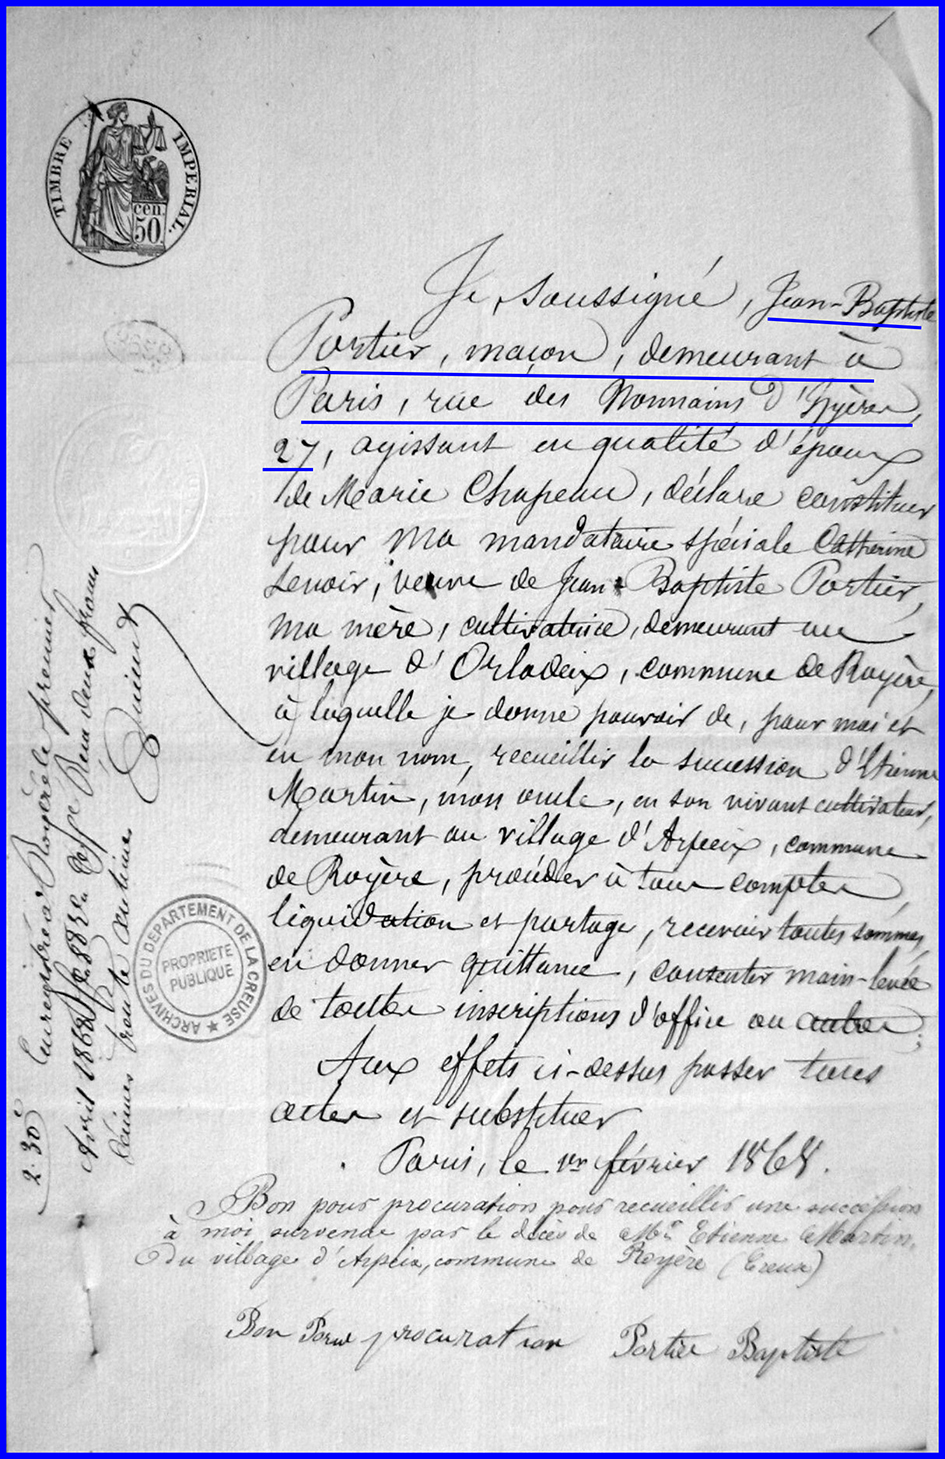 TIMBRE IMPERIAL.
cen.
50
Je soussigné, Jean-Baptiste
Portier, maçon, demeurant à
Paris, rue des Nonnains d'Hyères,
27, agissant en qualité d'époux
de Marie Chapeau, déclare constituer
pour ma mandataire spéciale Catherine
Lenoir, veuve de Jean-Baptiste Portier,
ma mère, cultivatrice, demeurant au
village d'Orladeix, commune de Royère,
à laquelle je donne pouvoir de, pour moi et
en mon nom, recueillir la succession d'Etienne
Martin, mon oncle, en son vivant cultivateur,
demeurant au village d'Arpeix, commune
de Royère, procéder à tous comptes,
liquidation et partage, recevoir toutes sommes,
en donner quittance, consentir main-levée
de toutes inscriptions d'office ou autres;
Aux effets ci-dessus passer tous
actes et substituer
Paris, le 1er février 1868.
Bon pour procuration pour recueillir une succession
à moi survenue par le décès de Mr Etienne Martin,
Du village d'Arpeix, commune de Royère (Creuse)
Bon Pour procuration Portier Baptiste
Enregistré à Royère le premier
Avril 1868 Reçu deux francs
décimes trente centimes
2.30
ARCHIVES DU DEPARTEMENT DE LA CREUSE ★
PROPRIETE
PUBLIQUE